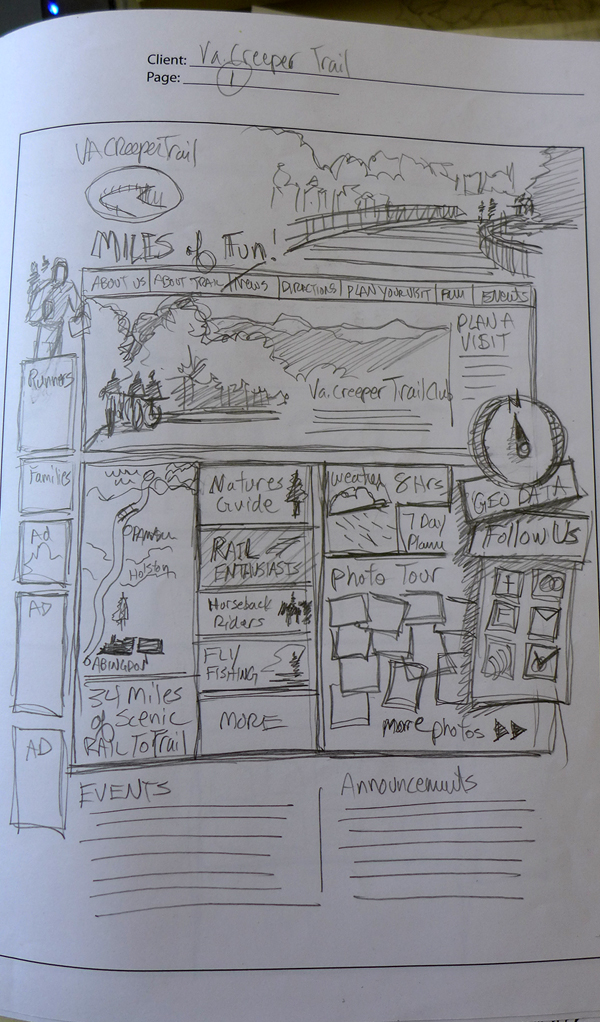 Client: Va. Creeper Trail
Page: 1
VA CReeper Trail
MILES of Fun!
ABOUT US
ABOUT TRAIL
NEWS
DIRECTIONS
PLAN YOUR VISIT
FUN
ENEWS
PLAN A
VISIT
Va. Creeper Trail Club
Runners
Families
Ad
AD
AD
N
GEO DATA
Follow Us
Holston
ABINGDON
34 Miles
of Scenic
RAIL To Trail
Natures
Guide
RAIL
ENTHUSIASTS
Horseback
Riders
FLY
FISHING
MORE
Weather 8 Hrs
7 Day
Photo Tour
more photos
EVENTS
Announcements